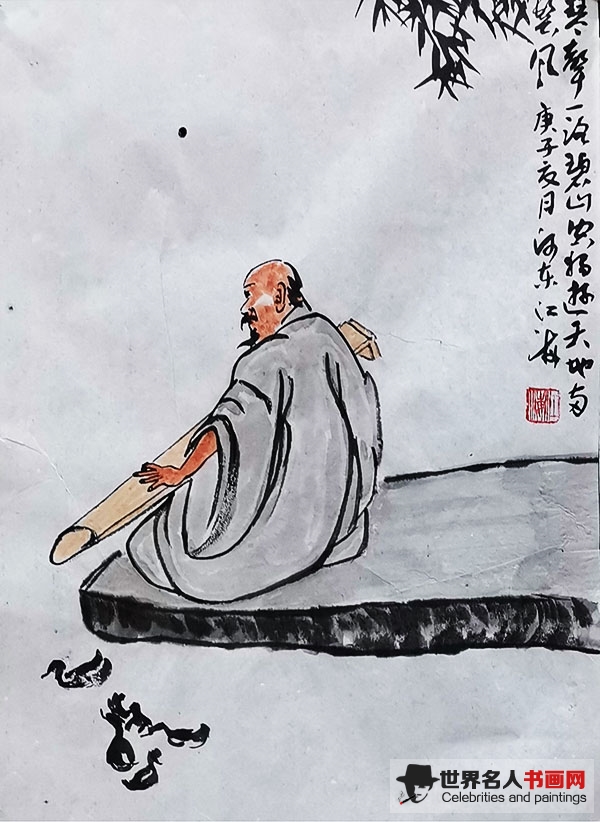 琴聲一路碧山独遊天地
风 庚子夏月河东江
世界名人书画网
Celebrities and paintings